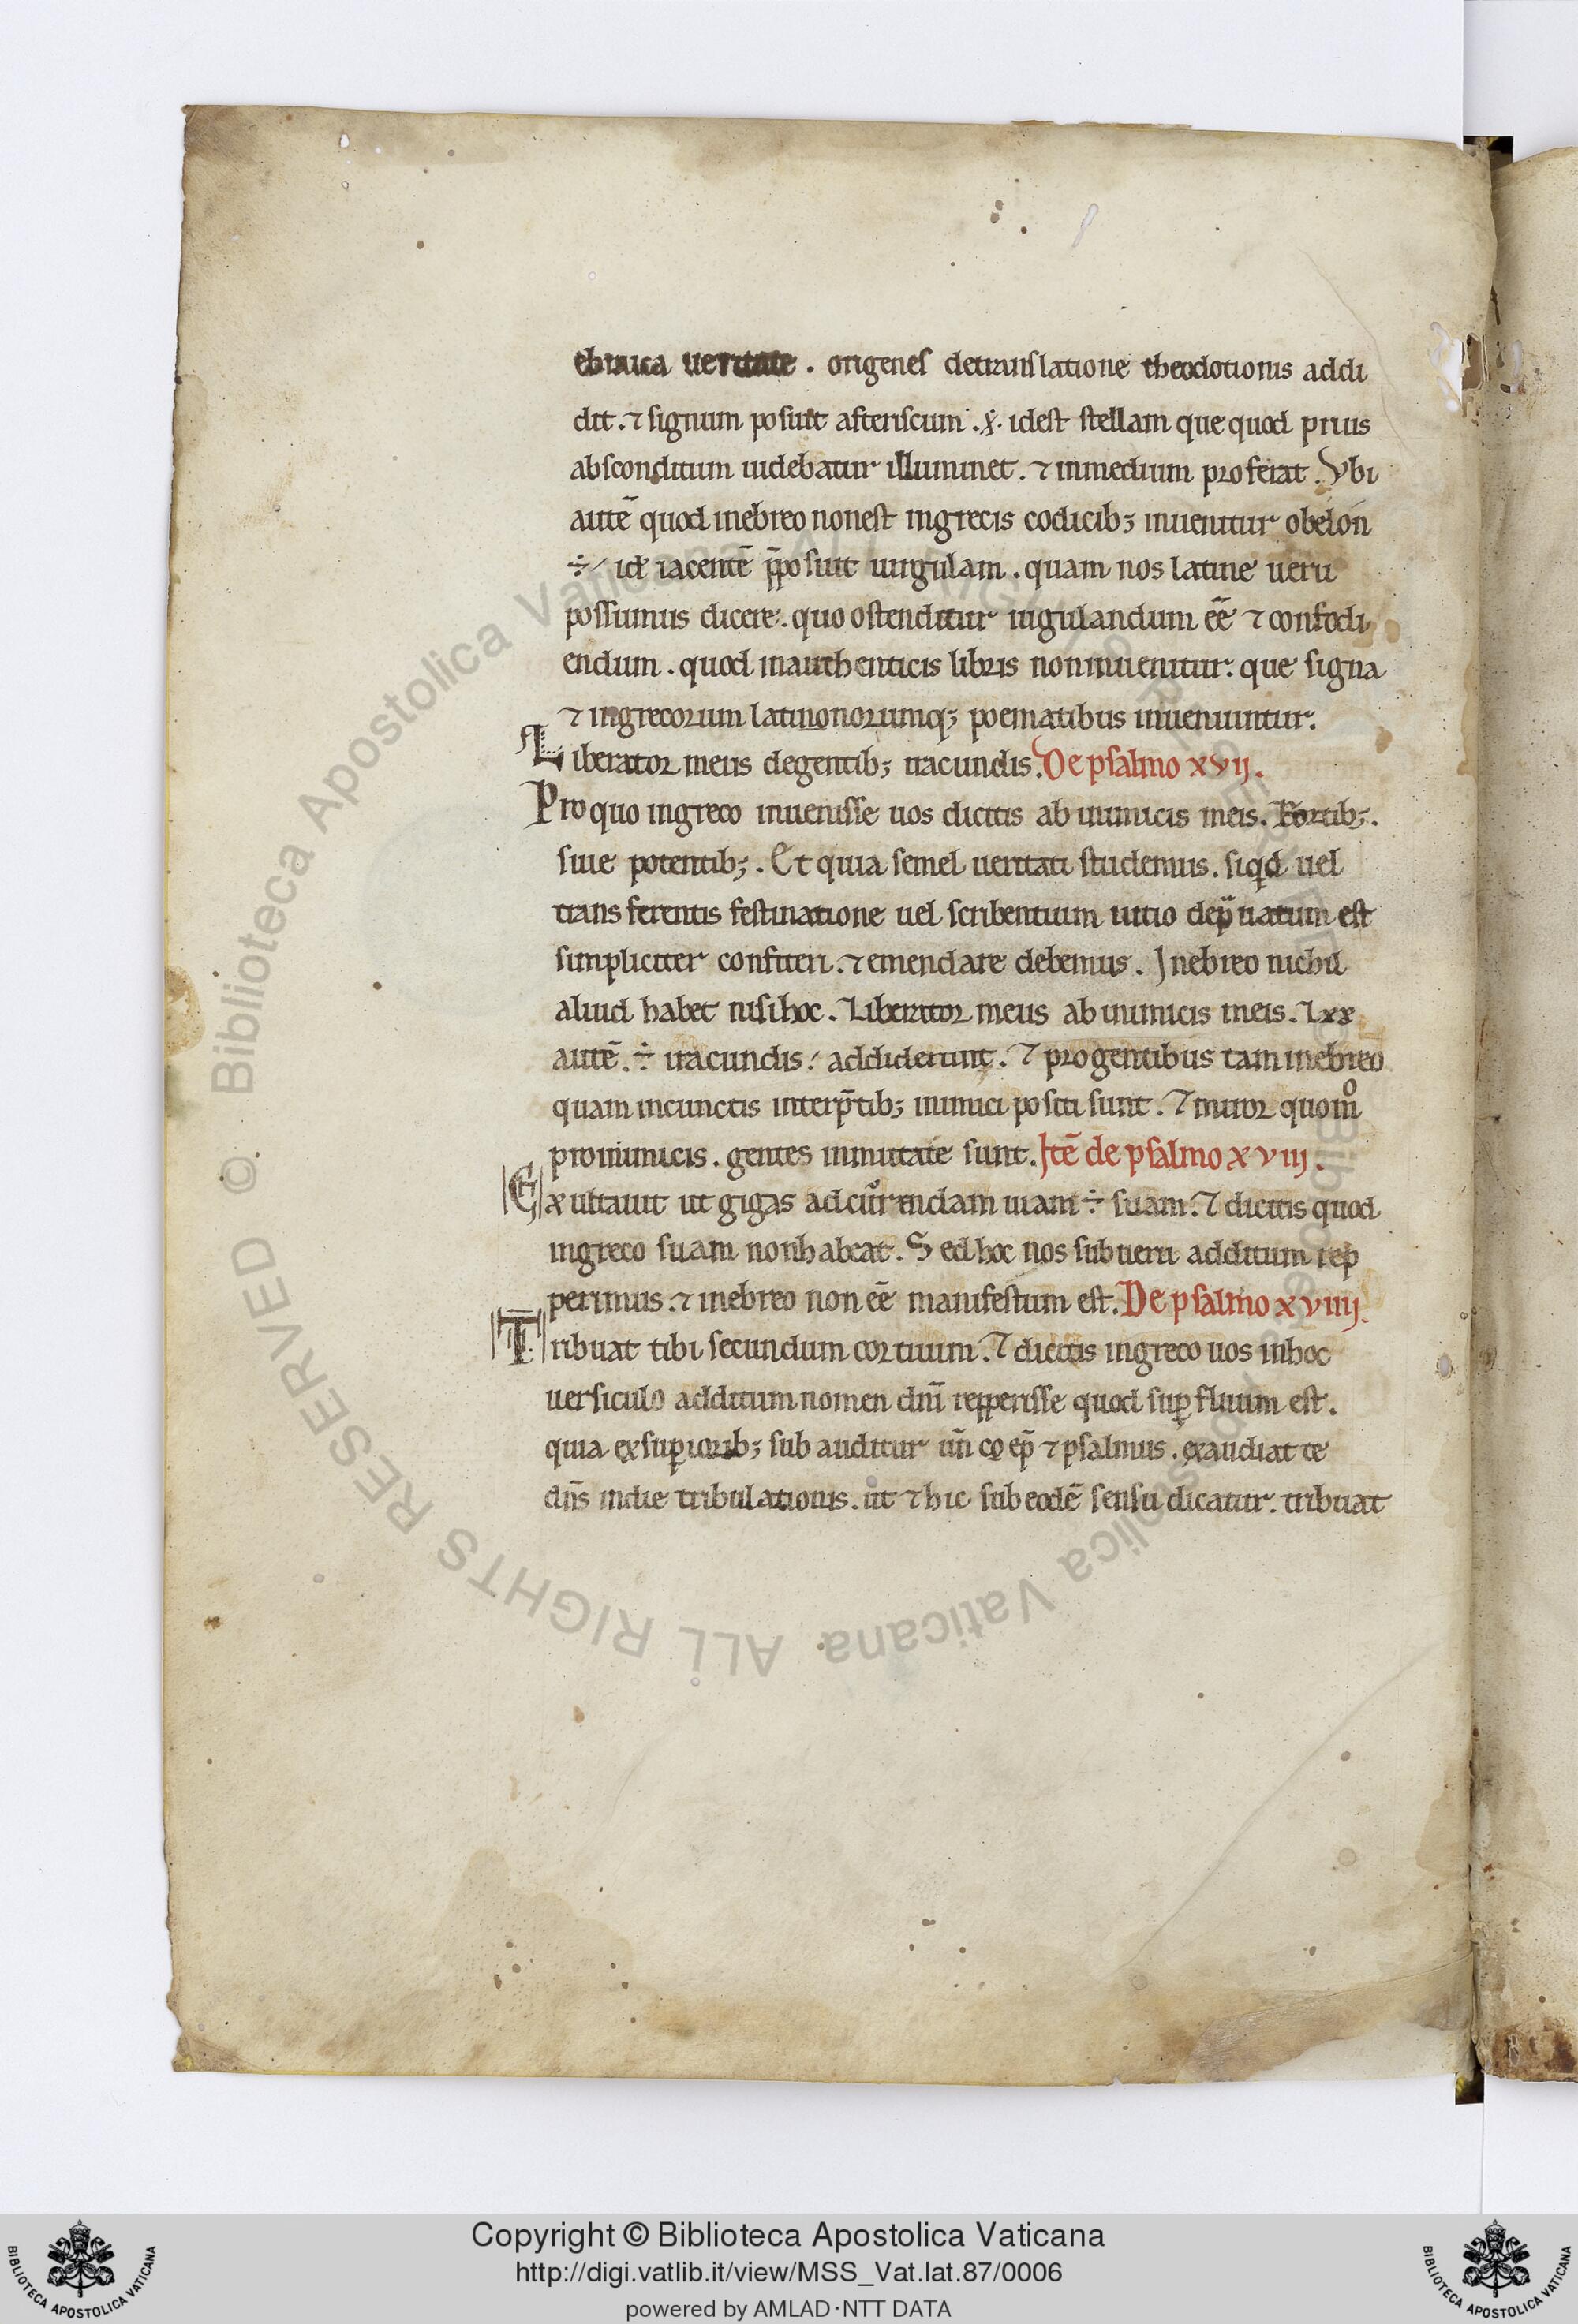 ebraica ueritate. origenes detranslatione theodotionis addi
dit. ⁊ signum posuit asteriscum .※. idest stellam que quod prius
absconditum uidebatur illuminet. ⁊ inmedium proferat. Vbi
autē quod inebreo nonest ingrecis codicib; inuenitur obelon
÷ / idē iacentē p̄posuit uirgulam. quam nos latine ueru
possumus dicere. quo ostenditur iugulandum eē ⁊ confodi
endum. quod inauthenticis libris noninuenitur. que signa
⁊ ingrecorum latinonorumq; poematibus inueniuntur.
Liberator meus degentib; iracundis. De psalmo xvii.
Pro quo ingreco inuenisse uos dicitis ab inimicis meis. Fortib;.
siue potentib;. Et quia semel ueritati studemus. siqd uel
transferentis festinatione uel scribentium uitio dep̄uatum est
simpliciter confiteri. ⁊ emendare debemus. Inebreo nichil
aliud habet nisihoc. Liberator meus ab inimicis meis. Lxx
autē. ÷ iracundis / addiderunt. ⁊ progentibus tam inebreo
quam incunctis interp̄tib; inimici positi sunt. ⁊ miror quomͦ
proinimicis. gentes inmutate sunt. Itē de psalmo xviii.
Exultauit ut gigas adcurrendam uiam ÷ suam. ⁊ dicitis quod
ingreco suam nonhabeat. Sed hoc nos subueru additum rep
perimus. ⁊ inebreo non eē manifestum est. De psalmo xviiii.
Tribuat tibi secundum cortuum. ⁊ dicitis ingreco uos inhoc
uersiculo additum nomen dn̄i repperisse quod suꝑfluum est.
quia exsuꝑiorib; sub auditur un̄ coep̄ ⁊ psalmus. exaudiat te
dn̄s indie tribulationis. ut ⁊ hic sub eodē sensu dicatur. tribuat
© Biblioteca Apostolica Vaticana ALL RIGHTS RESERVED
Copyright © Biblioteca Apostolica Vaticana
http://digi.vatlib.it/view/MSS_Vat.lat.87/0006
powered by AMLAD·NTT DATA
BIBLIOTECA APOSTOLICA VATICANA
BIBLIOTECA APOSTOLICA VATICANA